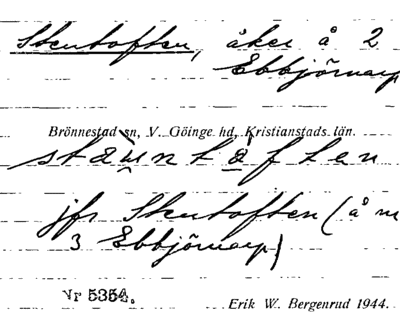 Stentoften, åker å 2
Ebbjörnarp
Brönnestad sn, V. Göinge hd, Kristianstads län.
stäu̯ntåften
jfr Stentoften (å nr
3 Ebbjörnarp)
Nr 5354.
Erik W. Bergenrud 1944.